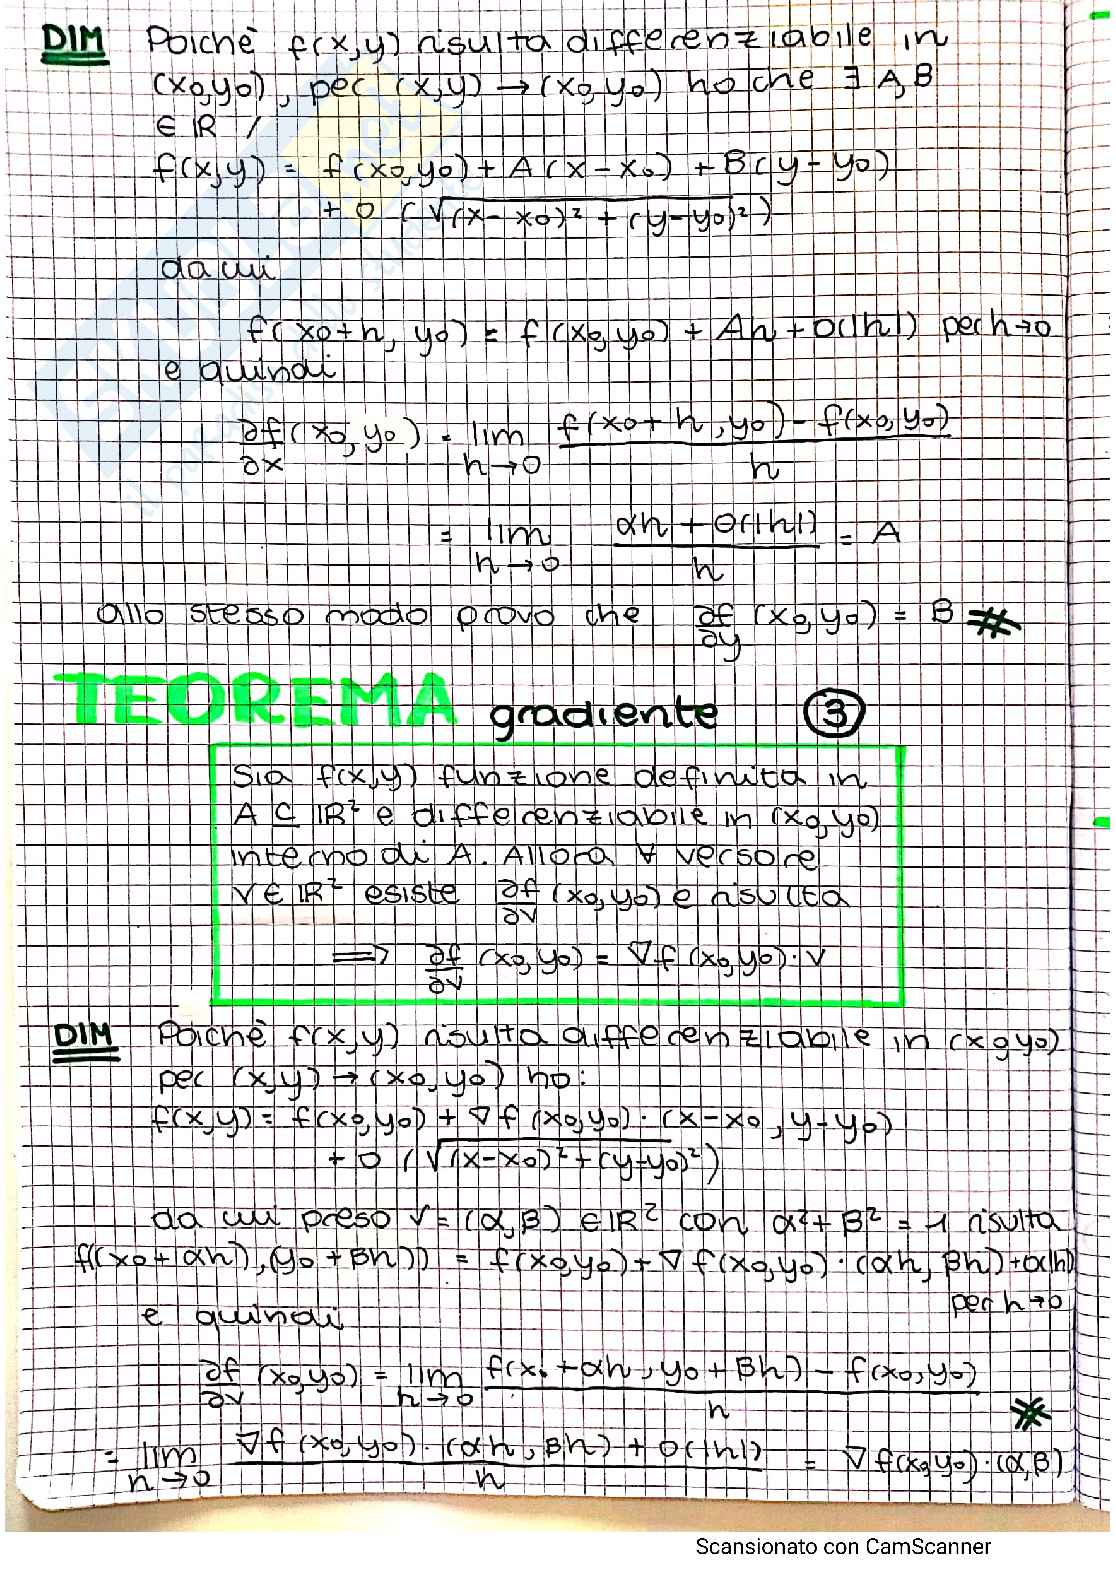 DIM Poichè f(x,y) risulta differenziabile in
(x0,y0), per (x,y) → (x0,y0) ho che ∃ A,B
∈ ℝ /
f(x,y) = f(x0,y0) + A(x-x0) + B(y-y0)
+ o (√(x-x0)² + (y-y0)²)
da cui
f(x0+h, y0) = f(x0,y0) + Ah + o(|h|) per h→0
e quindi
∂f/∂x (x0,y0) = lim h→0 f(x0+h,y0) - f(x0,y0) / h
= lim h→0 αh + o(|h|) / h = A
allo stesso modo provo che ∂f/∂y (x0,y0) = B #
TEOREMA gradiente 3
Sia f(x,y) funzione definita in
A ⊆ ℝ² e differenziabile in (x0,y0)
interno di A. Allora ∀ versore
v∈ℝ² esiste ∂f/∂v (x0,y0) e risulta
⟹ ∂f/∂v (x0,y0) = ∇f (x0,y0)·v
DIM Poichè f(x,y) risulta differenziabile in (x0,y0)
per (x,y) → (x0,y0) ho:
f(x,y) = f(x0,y0) + ∇f (x0,y0)·(x-x0, y-y0)
+ o (√(x-x0)²+(y-y0)²)
da cui preso v=(α,β) ∈ℝ² con α²+β² = 1 risulta
f((x0+αh),(y0+βh)) = f(x0,y0) + ∇f(x0,y0)·(αh,βh)+o(|h|)
per h→0
e quindi
∂f/∂v (x0,y0) = lim h→0 f(x0+αh,y0+βh) - f(x0,y0) / h
= lim h→0 ∇f(x0,y0)·(αh,βh) + o(|h|) / h = ∇f(x0,y0)·(α,β) #
Scansionato con CamScanner